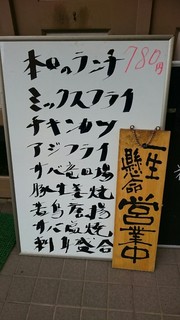 本日のランチ 780円
ミックスフライ
チキンカツ
アジフライ
サバ竜田揚
豚生姜焼
若鳥唐揚
サバ塩焼
刺身盛合
一生懸命営業中